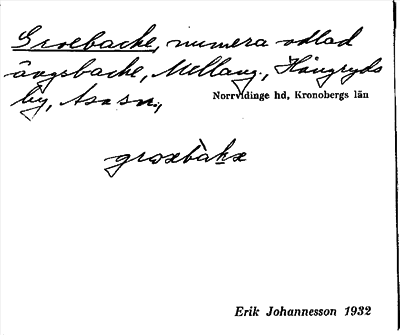 Groebacke, numera odlad
ängsbacke, Mellang., Hångryds
by, Asa sn.,
Norrvidinge hd, Kronobergs län
groxbàkx
Erik Johannesson 1932